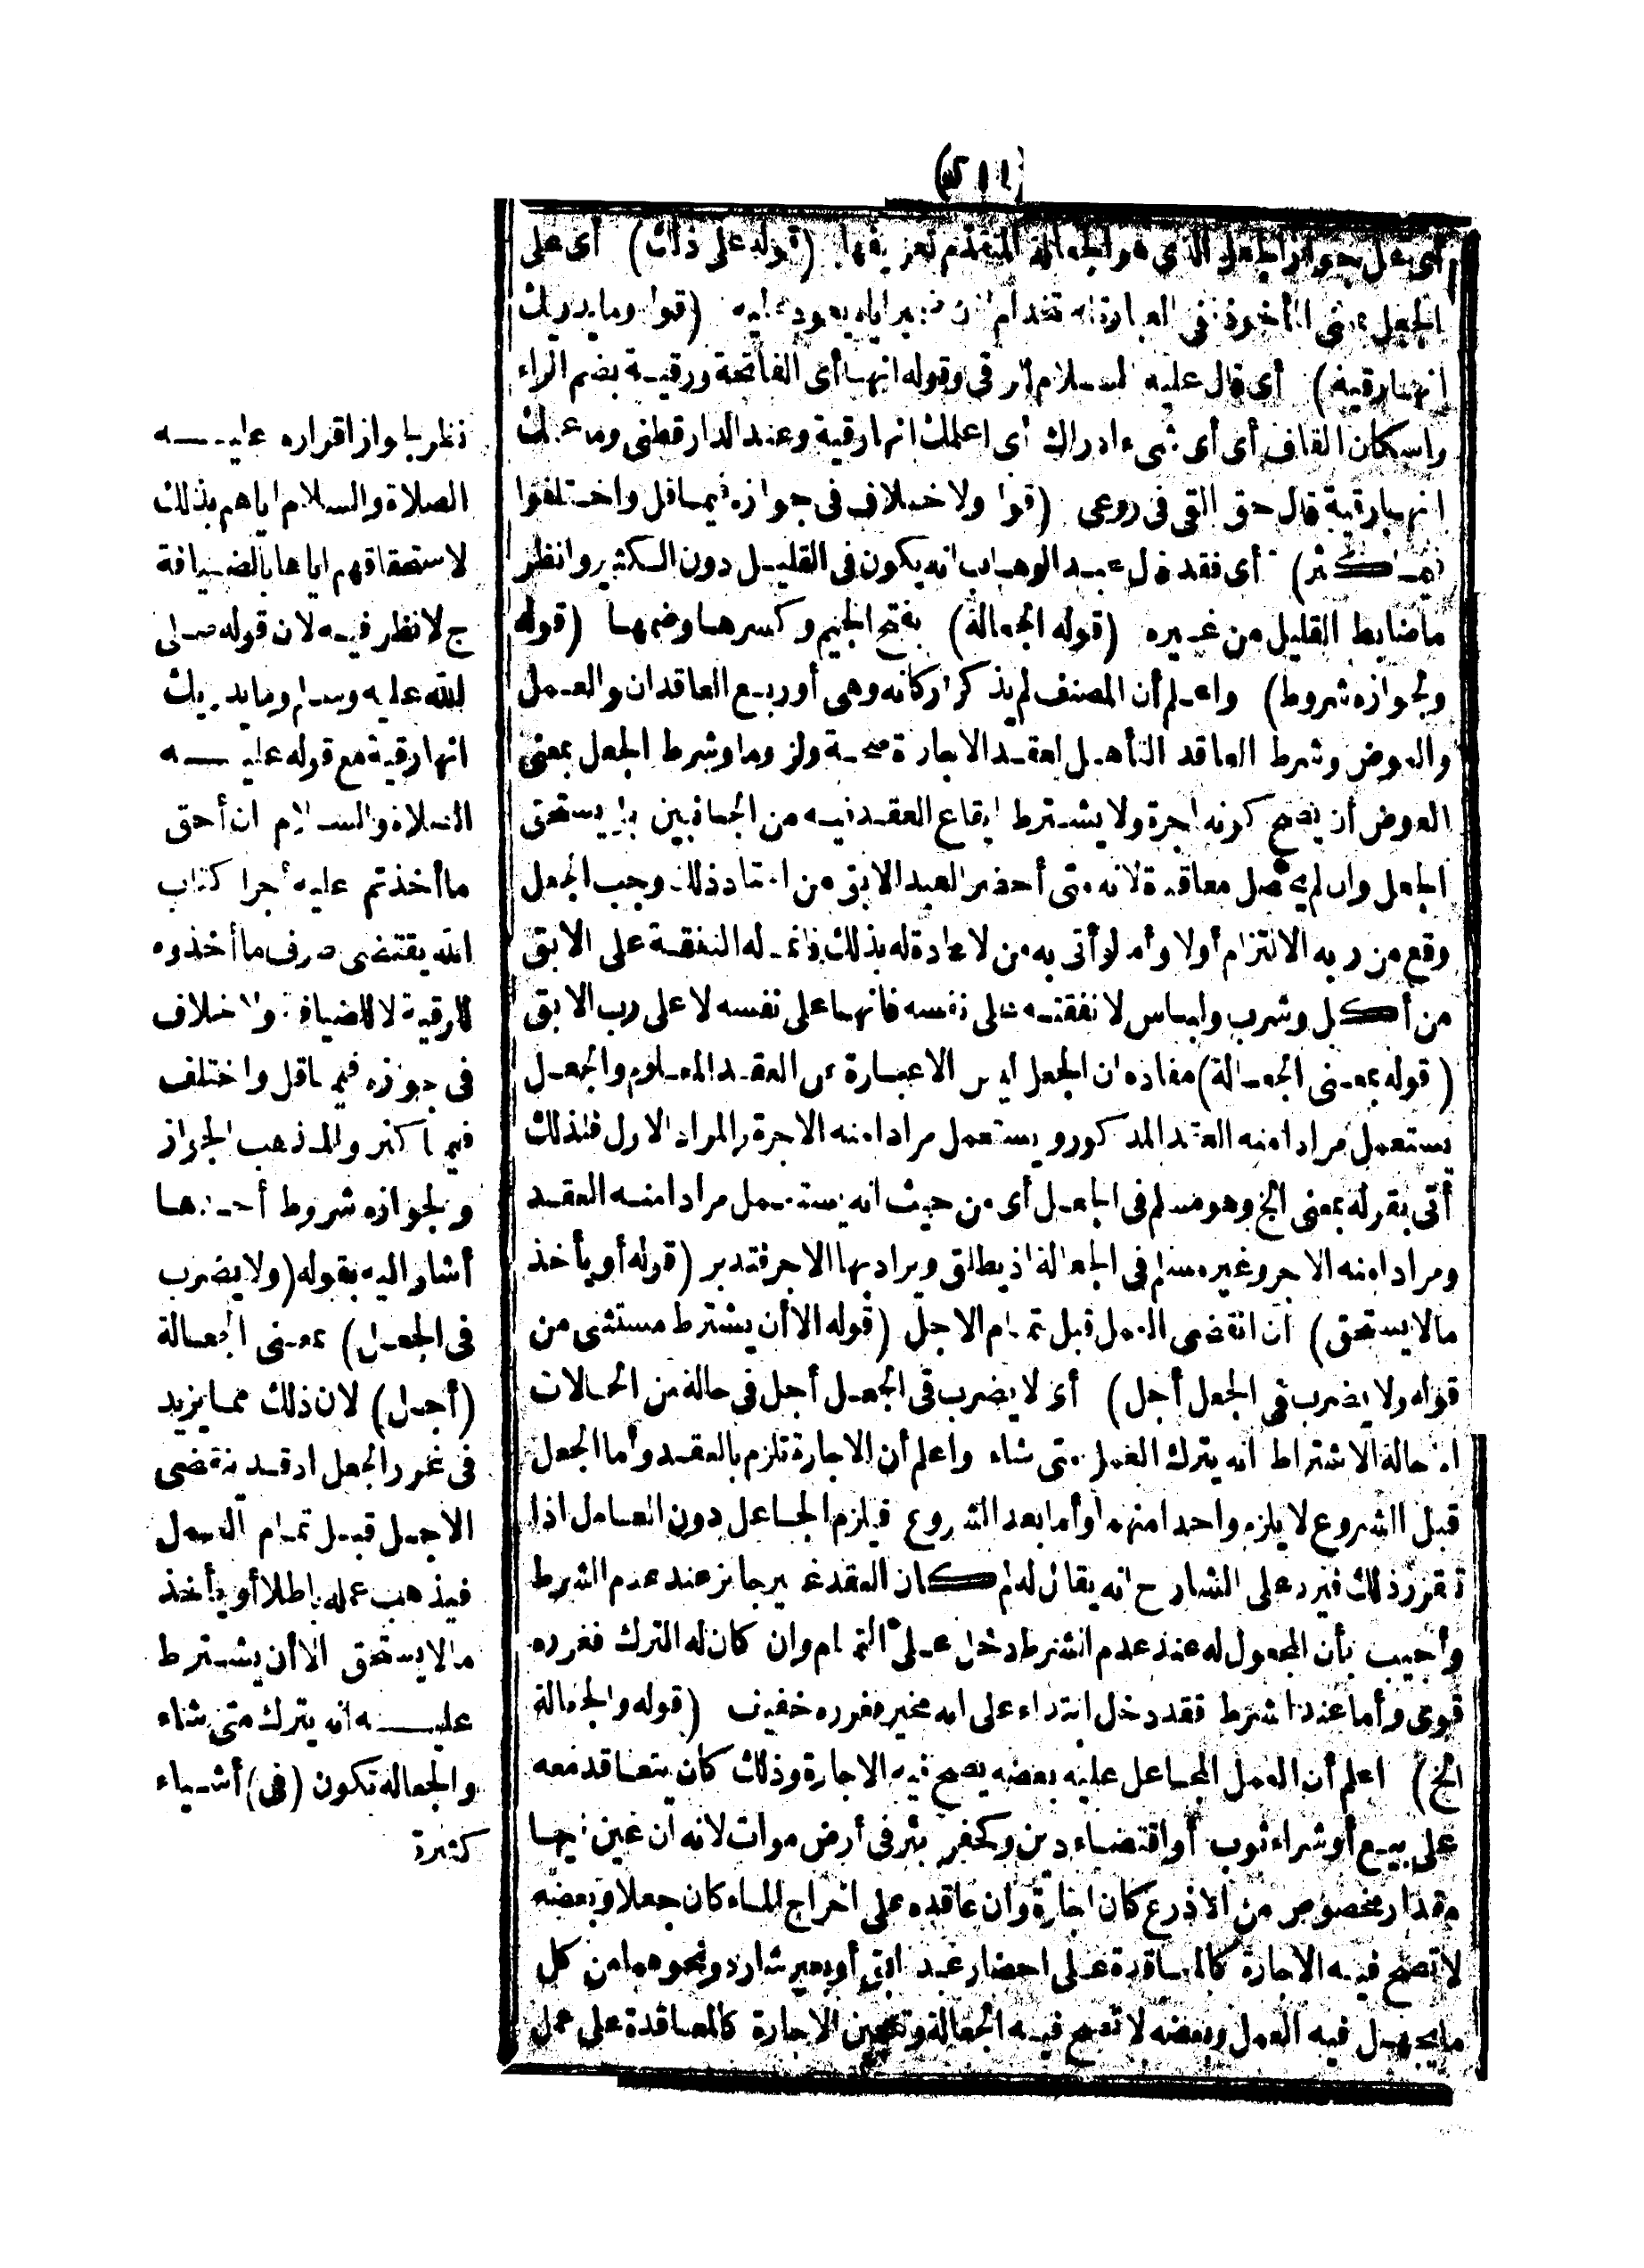 أى على جواز الجعل الذى هو الجعالة المتقدم تعريفها (قوله على ذلك) أى على
الجعل بمعنى المأخوذ ففى العبارة استخدام لان ضمير اياه يعود عليه (قوله وما يدريك
انها رقية) أى قال عليه السلام لمن رقى وقوله انها أى الفاتحة ورقية بضم الراء
واسكان القاف أى أى شىء ادراك أى اعلمك انها رقية وعند الدارقطنى وما علمك
انها رقية قال حق القى فى روعى (قوله ولا خلاف فى جوازه فيما قل واختلفوا
فيما كثر) أى فقد قال عبد الوهاب انه يكون فى القليل دون الكثير وانظر
ما ضابط القليل من غيره (قوله الجعالة) بفتح الجيم وكسرها وضمها (قوله
ولجوازه شروط) واعلم أن المصنف لم يذكر اركانه وهى أو ربع العاقدان والعمل
والعوض وشرط العاقد التأهل لعقد الاجارة صحة ولزوما وشرط الجعل بمعنى
العوض أن يصح كونه اجرة ولا يشترط ايقاع العقد فيه من الجانبين بل يستحق
الجعل وان لم يحصل معاقدة لانه متى أحضر العبد الآبق من اعتاد ذلك وجب الجعل
وقع من ربه الالتزام أولا وأما لو أتى به من لا عادة له بذلك فانما له النفقة على الآبق
من أكل وشرب ولباس لا نفقته على نفسه فانها على نفسه لا على رب الآبق
(قوله بمعنى الجعالة) مفاده ان الجعل ليس الا عبارة عن العقد المعلوم والجعل
يستعمل مرادا منه العقد المذكور ويستعمل مرادا منه الاجرة والمراد الاول فلذلك
أتى بقوله بمعنى الخ وهو مسلم فى الجعل أى من حيث انه يستعمل مرادا منه العقد
ومرادا منه الاجر وغير مسلم فى الجعالة اذ يطلق ويراد بها الاجر فتدبر (قوله أو يأخذ
مالا يستحق) ان انقضى العمل قبل تمام الاجل (قوله الا أن يشترط مستثنى من
قوله ولا يضرب فى الجعل أجل) أى لا يضرب فى الجعل أجل فى حالة من الحالات
الا حالة الاشتراط انه يترك العمل متى شاء واعلم أن الاجارة تلزم بالعقد وأما الجعل
قبل الشروع لا يلزم واحدا منهما وأما بعد الشروع فيلزم الجاعل دون العامل اذا
تقرر ذلك فيرد على الشارح انه يقال له لم كان العقد غير جائز عند عدم الشرط
وأجيب بأن المجعول له عند عدم الشرط دخل على التمام وان كان له الترك فغرره
قوى وأما عند الشرط فقد دخل ابتداء على انه مخير فغرره خفيف (قوله والجعالة
الخ) اعلم أن العمل المجاعل عليه بعضه يصح فيه الاجارة وذلك كأن يتعاقد معه
على بيع أو شراء ثوب أو اقتضاء دين وكحفر بئر فى أرض موات لانه ان عين فيها
مقدار مخصوص من الاذرع كان اجارة وان عاقده على اخراج الماء كان جعلا وبعضه
لا تصح فيه الاجارة كالمعاقدة على احضار عبد آبق أو بعير شارد ونحوهما من كل
ما يجهل فيه العمل وبعضه لا تصح فيه الجعالة وتتعين الاجارة كالمعاقدة على عمل
نظر لجواز اقراره عليه
الصلاة والسلام اياهم بذلك
لاستحقاقهم اياها بالضيافة
ج لا نظر فيه لان قوله صلى
الله عليه وسلم وما يدريك
انها رقية مع قوله عليه
الصلاة والسلام ان أحق
ما أخذتم عليه أجرا كتاب
الله يقتضى صرف ما أخذوه
للرقية لا للضيافة ولا خلاف
فى جوازه فيما قل واختلف
فيما كثر والمذهب الجواز
ولجوازه شروط أحدها
أشار اليه بقوله (ولا يضرب
فى الجعل) بمعنى الجعالة
(أجل) لان ذلك مما يزيد
فى غرر الجعل اذ قد ينقضى
الاجل قبل تمام العمل
فيذهب عمله باطلا أو يأخذ
مالا يستحق الا أن يشترط
عليه انه يترك متى شاء
والجعالة تكون (فى) أشياء
كثيرة